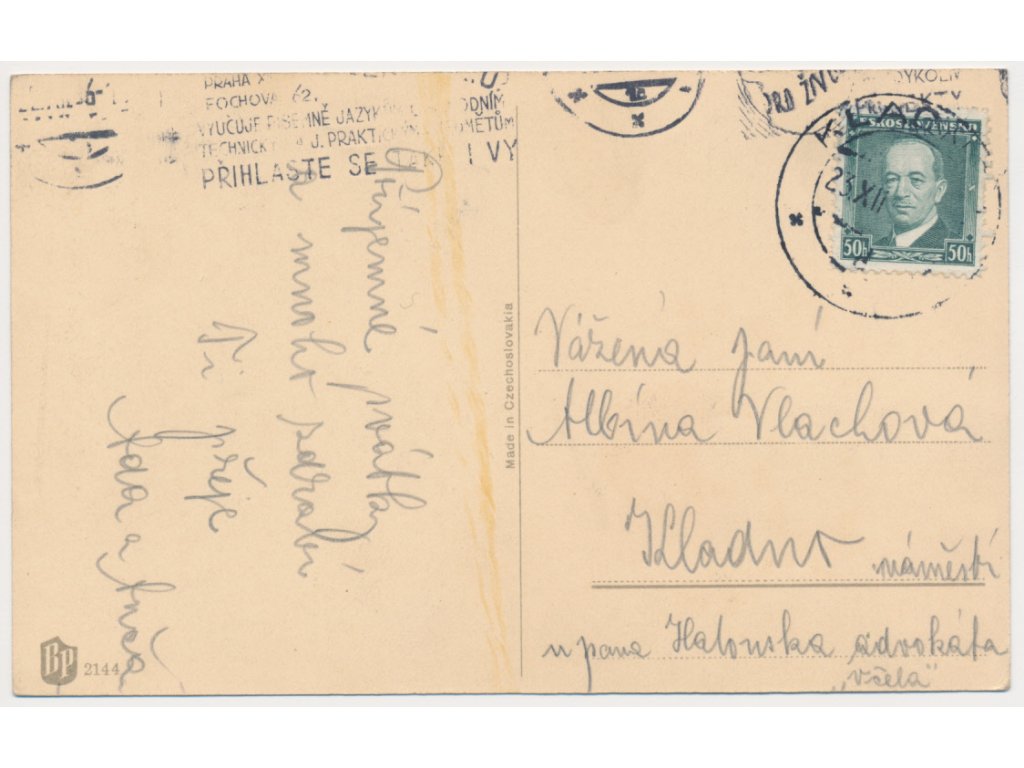 PRAHA X
FOCHOVA 62.
VYUČUJE PÍSEMNĚ JAZYKŮM
ODNÍM
TECHNICK J. PRAKTICKÝM
MĚTŮM
PŘIHLASTE SE I VY
PRO ŽIV
ČESKOSLOVENSKO
23.XII
50h 50h
Příjemné svátky
a mnoho zdraví
Ti přeje
Ada a Anča
Made in Czechoslovakia
Vážená paní
Albína Vlachová
Kladno
náměstí
u pana Hatonska advokáta
„Včela"
BP
2144